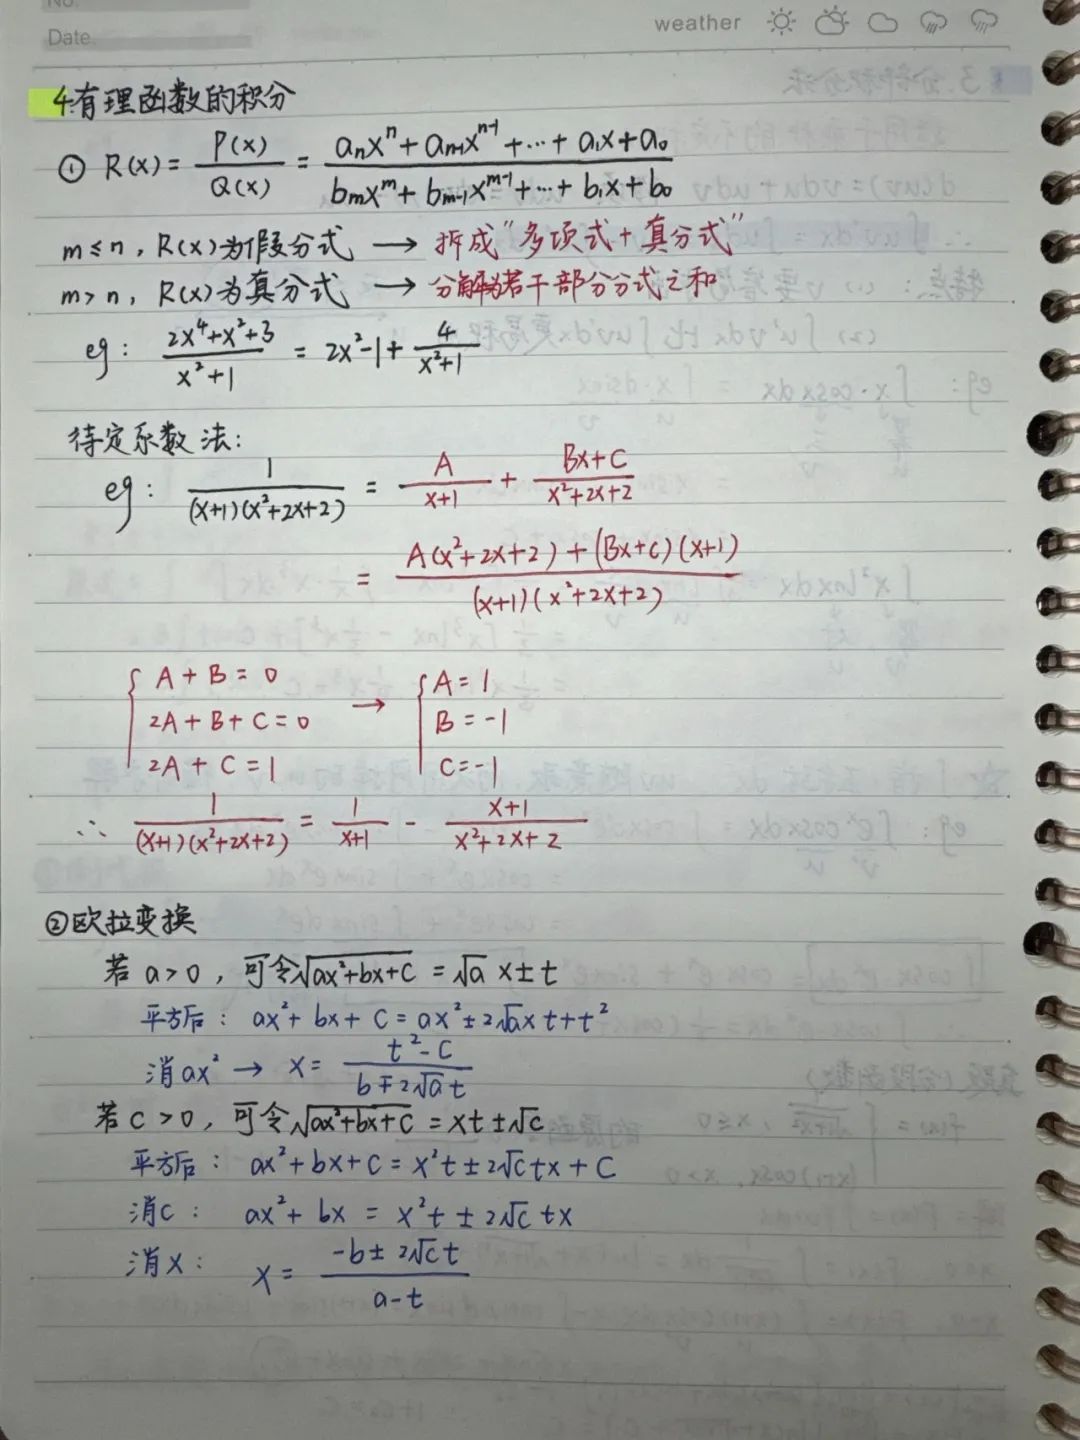 No.
Date.
weather
4.有理函数的积分
① R(x) = P(x)/Q(x) = (aₙxⁿ + aₙ₋₁xⁿ⁻¹ + ··· + a₁x + a₀)/(bₘxᵐ + bₘ₋₁xᵐ⁻¹ + ··· + b₁x + b₀)
m ≤ n, R(x)为假分式 → 拆成"多项式 + 真分式"
m > n, R(x)为真分式 → 分解为若干部分分式之和
eg: (2x⁴+x²+3)/(x²+1) = 2x²-1 + 4/(x²+1)
待定系数法:
eg: 1/((x+1)(x²+2x+2)) = A/(x+1) + (Bx+C)/(x²+2x+2)
= (A(x²+2x+2) + (Bx+C)(x+1))/((x+1)(x²+2x+2))
{ A + B = 0 → { A = 1
2A + B + C = 0 B = -1
2A + C = 1 C = -1
∴ 1/((x+1)(x²+2x+2)) = 1/(x+1) - (x+1)/(x²+2x+2)
②欧拉变换
若 a>0, 可令√(ax²+bx+c) = √a x ± t
平方后: ax² + bx + c = ax² ± 2√a x t + t²
消ax² → x = (t² - c)/(b ∓ 2√a t)
若 c>0, 可令√(ax²+bx+c) = xt ± √c
平方后: ax² + bx + c = x²t ± 2√c tx + c
消c: ax² + bx = x²t ± 2√c tx
消x: x = (-b ± 2√c t)/(a - t)